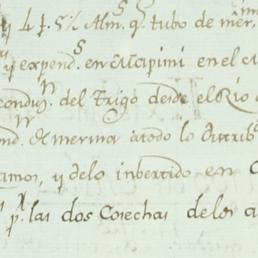 y 4 p. 5% Alms. q. tubo de mer
y expends. en Mapimi en el
condusn. del Trigo desde el Rio
nd. de merma atodo lo distrib
amos, y delo inbertido en
p. las dos Cosechas delos a